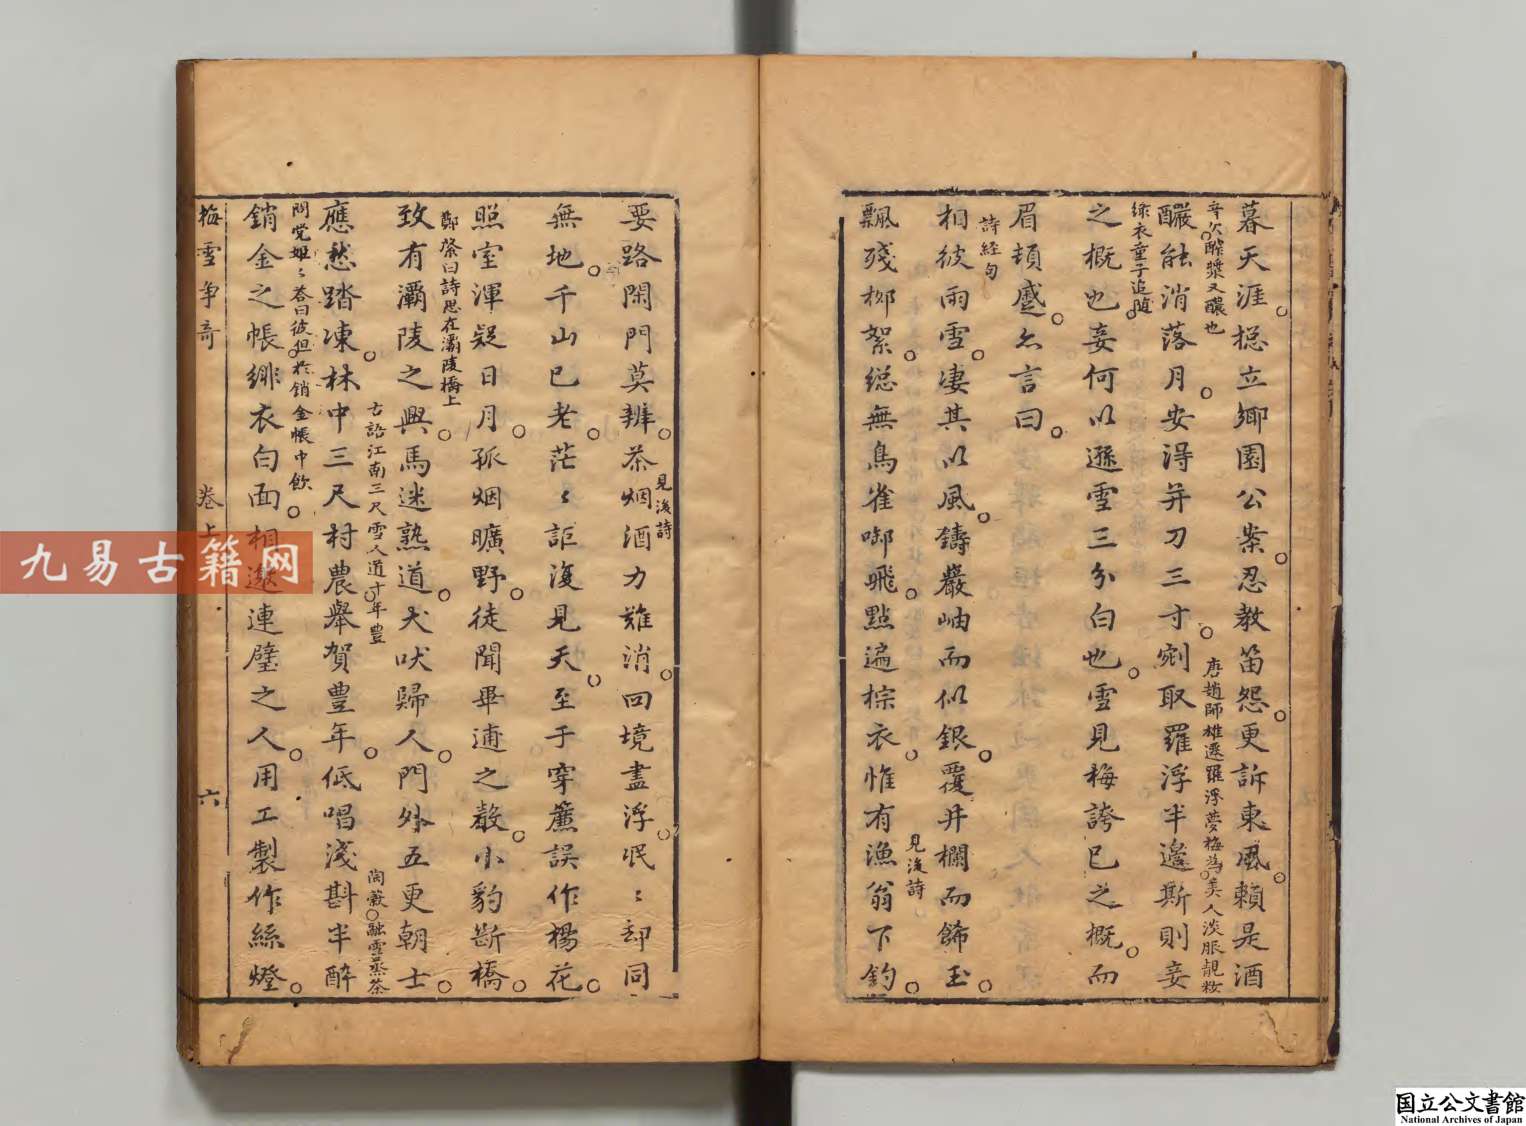 暮天涯摠立鄉園公案忍教笛怨更訴東風賴是酒
辛次醡漿又醲也
唐趙師雄遷羅浮夢梅為美人淡服靚粧
釅能消落月安淂并刀三寸剜取羅浮半邉斯則妾
綠衣童子追随
之概也妾何以遜雪三分白也雪見梅誇已之概而
眉頰蹙尒言曰
詩經句
相彼雨雪凄其以風鑄巖岫而似銀覆井欄而飾玉
見後詩
飄殘栁絮緫無鳥雀啣飛點遍棕衣惟有漁翁下釣
要路閑門莫辨茶烟酒力難消回境盡浮泯〻却同
見後詩
無地千山已老茫〻詎復見天至于穿簾誤作楊花
照室渾疑日月孤烟曠野徒聞畢逋之散小豹斷橋
鄭綮曰詩思在灞陵橋上
致有灞陵之興馬迷熟道犬吠歸人門外五更朝士
古語江南三尺雪人道十年豊
陶穀融雪烹茶
應愁踏凍林中三尺村農舉賀豊年低唱淺斟半醉
問党姬〻答曰彼但於銷金帳中飲
銷金之帳緋衣白面相邀連璧之人用工製作絲燈
梅雪争竒 卷上 六
九易古籍网
国立公文書館
National Archives of Japan